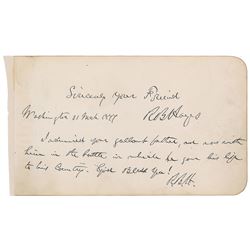 Sincerely Your Friend
R B Hayes
Washington 21 Mch 1877
I admired your gallant father, and was with
him in the battle in which he gave his life
to his Country. God Bless You!
R.B.H.